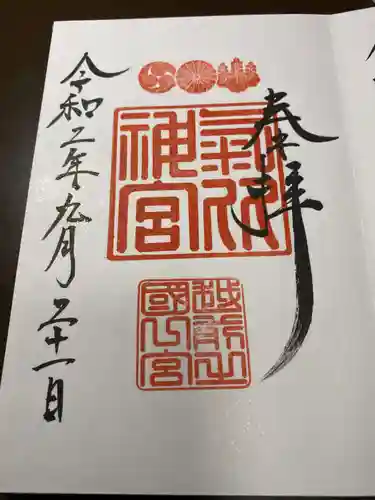 奉拝
氣比神宮
越前之國一宮
令和二年九月二十一日